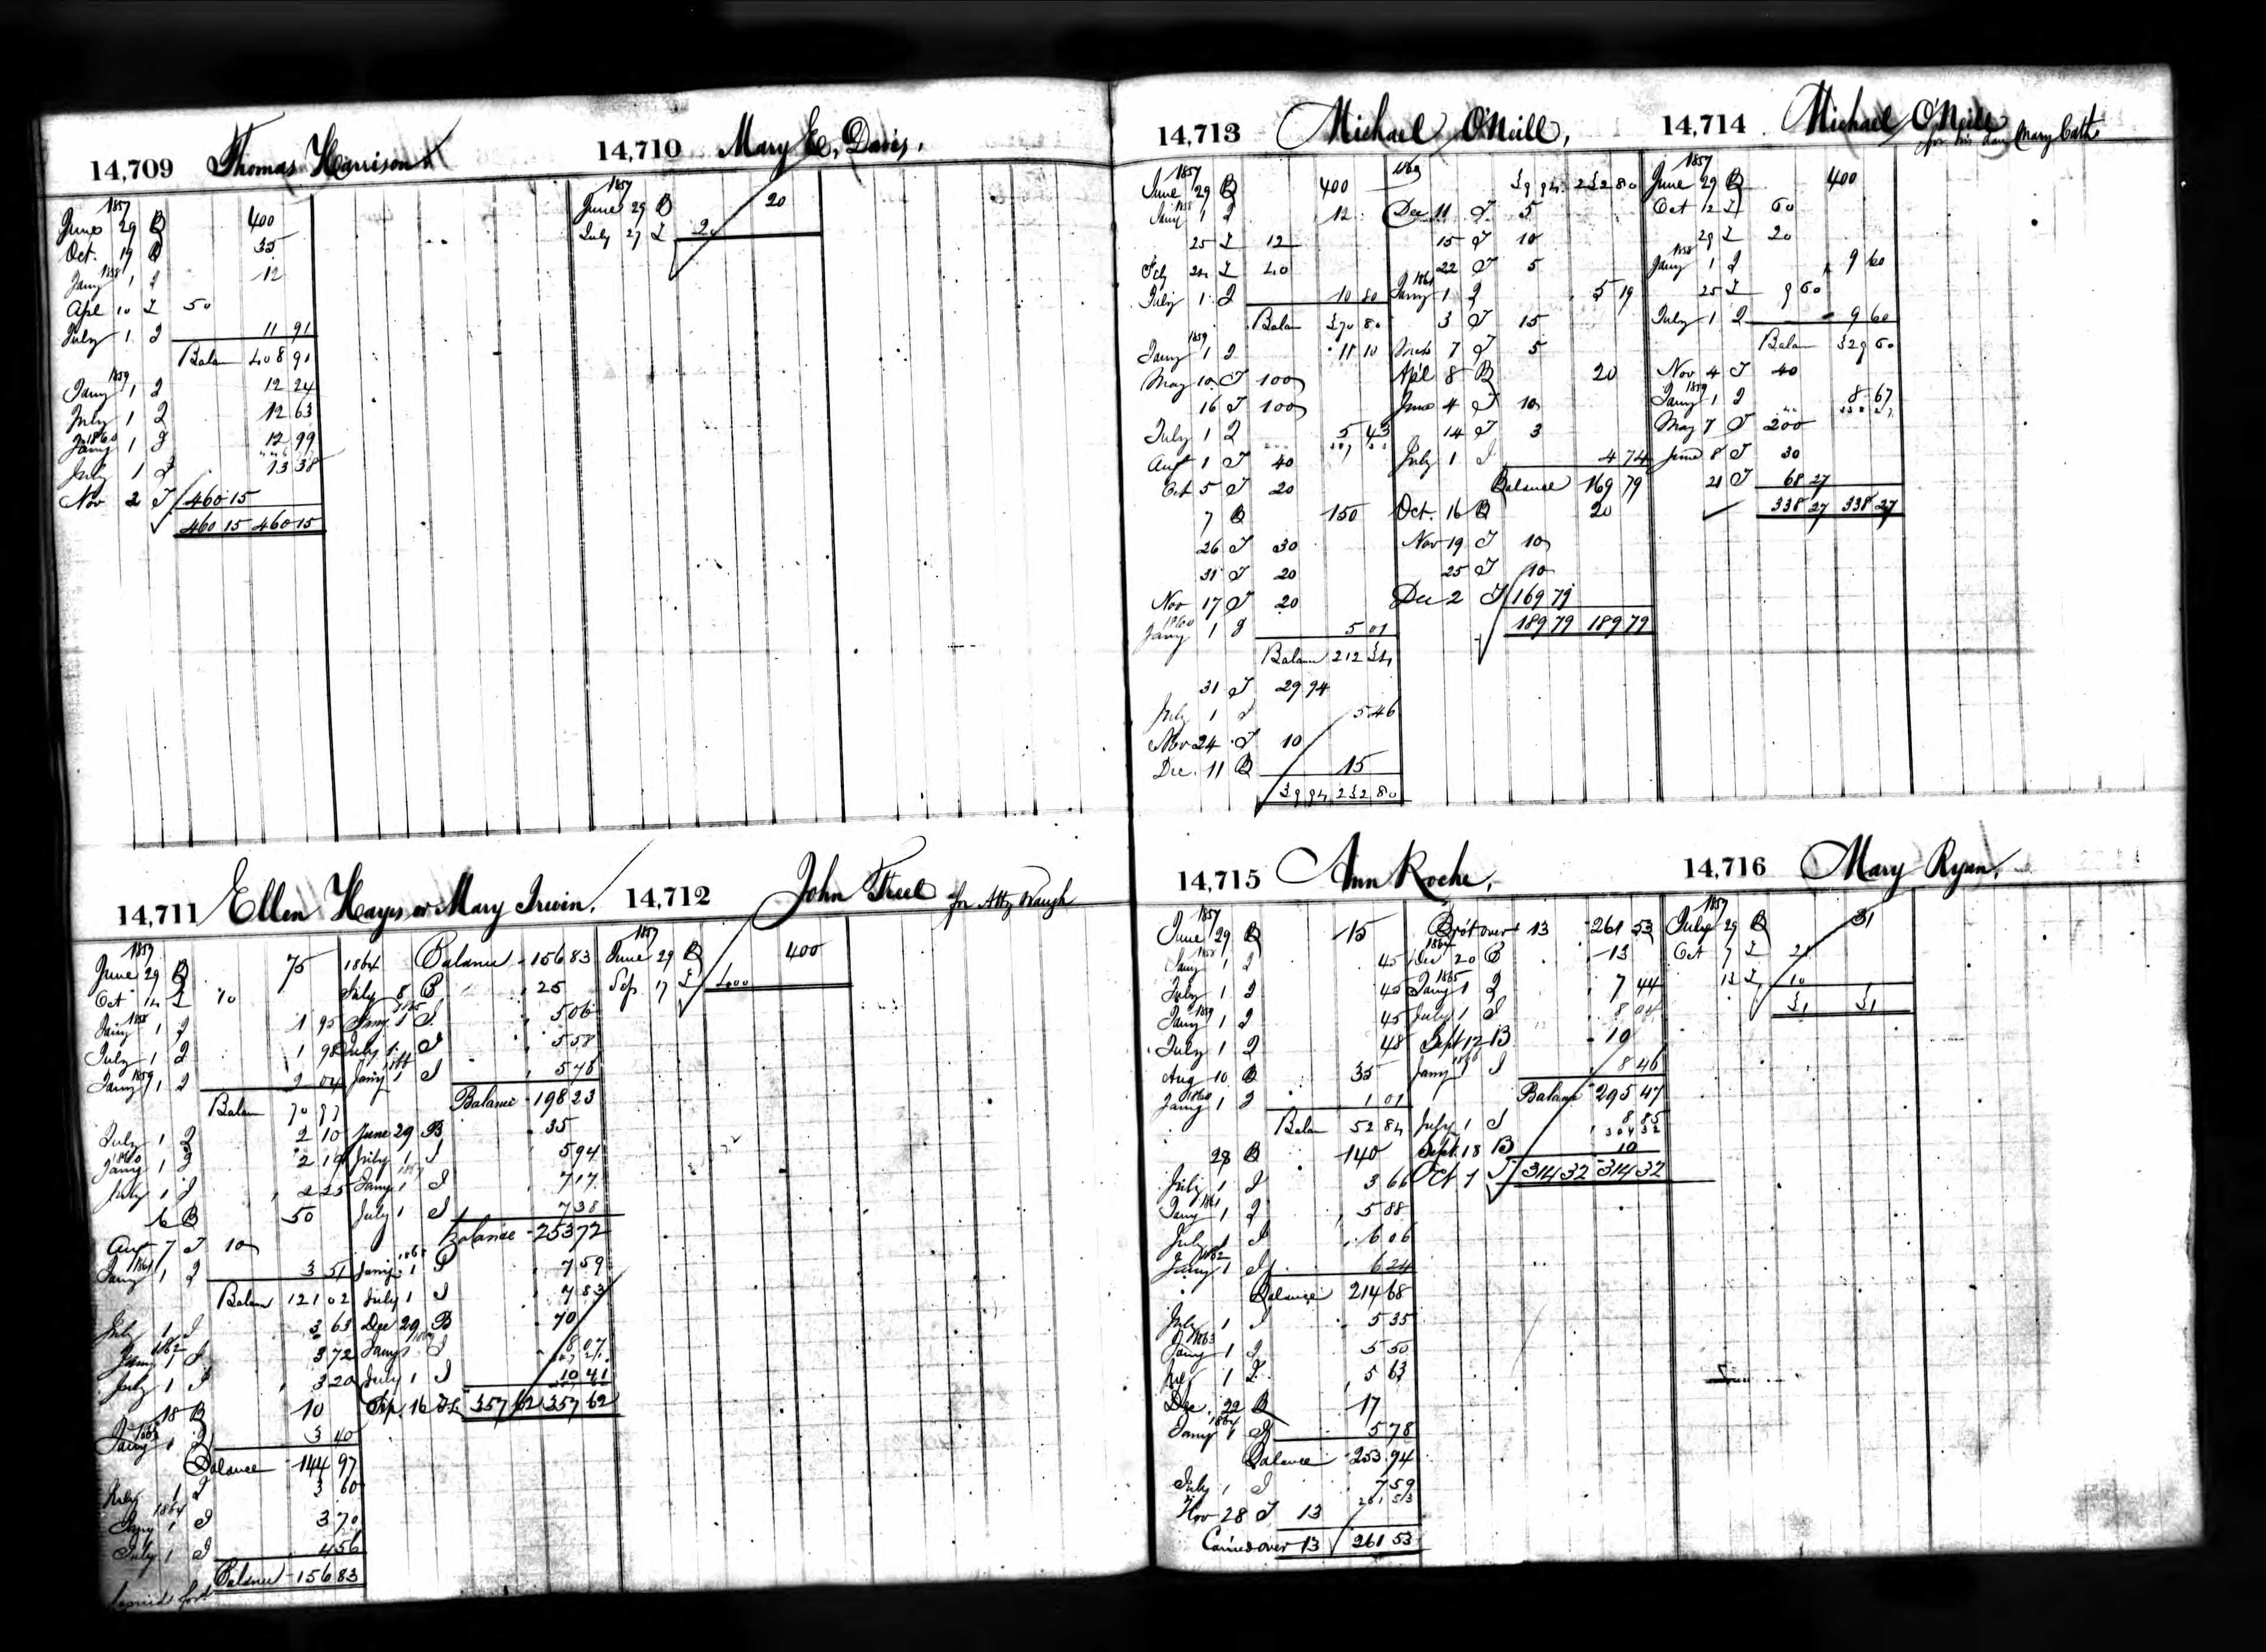 14,709 Thomas Harrison
1857
June 29 B 400
Oct. 19 B 35
1858
Jany 1 I 12
Apl 10 T 50
July 1 I 11 91
Balan 408 91
1859
Jany 1 I 12 24
July 1 I 12 63
1860
Jany 1 I 12 99
July 1 I 13 38
Nov 2 T 460 15
460 15 460 15
14,710 Mary E. Davis.
1857
June 29 B 20
July 27 T 20
14,711 Ellen Hayes or Mary Irwin.
1857
June 29 B 75
Oct 14 T 10
1858
Jany 1 I 1 95
July 1 I 1 98
1859
Jany 1 I 2 04
Balan 70 97
July 1 I 2 10
1860
Jany 1 I 2 19
July 1 I 2 25
16 B 50
Aug 7 T 10
1861
Jany 1 I 3 51
Balan 121 02
July 1 I 3 63
1862
Jany 1 I 3 72
July 1 I 3 20
18 B 10
1863
Jany 1 I 3 40
Balance 144 97
July 1 I 3 60
1864
Jany 1 I 3 70
July 1 I 4 56
Balance 156 83
1864 Balance 156 83
July 8 B 25
1865
Jany 1 I 5 06
July 1 I 5 58
1866
Jany 1 I 5 76
Balance 198 23
June 29 B 35
July 1 I 5 94
1867
Jany 1 I 7 17
July 1 I 7 38
Balance 253 72
1868
Jany 1 I 7 59
July 1 I 7 83
Dec 29 B 70
1869
Jany 1 I 8 07
July 1 I 10 41
Sep. 16 357 62 357 62
14,712 John Freel for Atty Waugh
1857
June 29 B 400
Sep. 17 T 400
14,713 Michael O'Neill,
1857
June 29 B 400
1858
Jany 1 I 12
25 T 12
Feby 24 T 40
July 1 I 10 80
Balan 370 80
1859
Jany 1 I 11 10
May 10 T 100
16 T 100
July 1 I 5 43
Aug 1 T 40
Oct 5 T 20
7 B 150
26 T 30
31 T 20
Nov 17 T 20
1860
Jany 1 I 5 01
Balan 212 34
31 T 29 94
July 1 I 5 46
Nov 24 T 10
Dec. 11 B 15
39 94 232 80
1860 39 94 232 80
Dec 11 T 5
15 T 10
22 T 5
1861
Jany 1 I 5 19
3 T 15
7 T 5
Apl 8 B 20
June 4 T 10
14 T 3
July 1 I 4 74
Balance 169 79
Oct. 16 B 20
Nov 19 T 10
25 T 10
Dec 2 T 169 79
189 79 189 79
14,714 Michael O'Neill
for his dau Mary Cath
1857
June 29 B 400
Oct 12 T 60
29 T 20
1858
Jany 1 I 9 60
25 T 9 60
July 1 I 9 60
Balan 329 60
Nov 4 T 40
1859
Jany 1 I 8 67
May 7 T 200
June 8 T 30
21 T 68 27
338 27 338 27
14,715 Ann Roche,
1857
June 29 B 15
1858
Jany 1 I 45
July 1 I 45
1859
Jany 1 I 45
July 1 I 48
Aug 10 B 35
1860
Jany 1 I 1 01
Balan 52 84
28 B 140
July 1 I 3 66
1861
Jany 1 I 5 88
July 1 I 6 06
1862
Jany 1 I 6 24
Balance 214 68
July 1 I 5 35
1863
Jany 1 I 5 50
July 1 I 5 63
Dec. 22 B 17
1864
Jany 1 I 5 78
Balance 253 94
July 1 I 7 59
261 53
Nov 28 T 13
Carried over 13 261 53
Bro't over 13 261 53
1864
Dec 20 B 13
1865
Jany 1 I 7 44
July 1 I 8 04
Sept 12 B 10
1866
Jany 1 I 8 46
Balance 295 47
July 1 I 8 85
304 32
Sept. 18 B 10
Oct 1 314 32 314 32
14,716 Mary Ryan.
1857
July 29 B 31
Oct 7 T 21
13 T 10
31 31